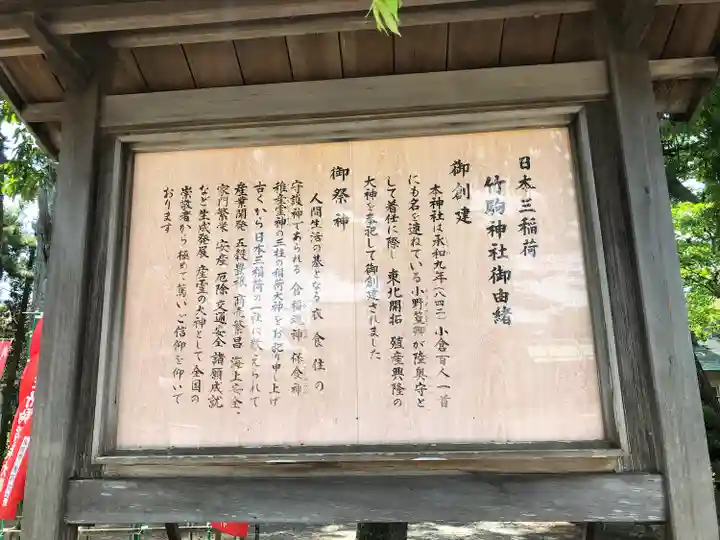 日本三稲荷
竹駒神社御由緒
御創建
本神社は承和九年(八四二)小倉百人一首
にも名を連ねている小野篁卿が陸奥守と
して着任に際し 東北開拓 殖産興隆の
大神を奉祀して御創建されました
御祭神
人間生活の基となる衣 食 住の
守護神であられる 倉稲魂神 保食神
稚産霊神の三柱の稲荷大神をお祀り申し上げ
古くから日本三稲荷の一社に数えられて
産業開発 五穀豊穣 商売繁昌 海上安全
家門繁栄 安産 厄除 交通安全 諸願成就
など生成発展 産霊の大神として 全国の
崇敬者から 極めて篤いご信仰を仰いで
おります